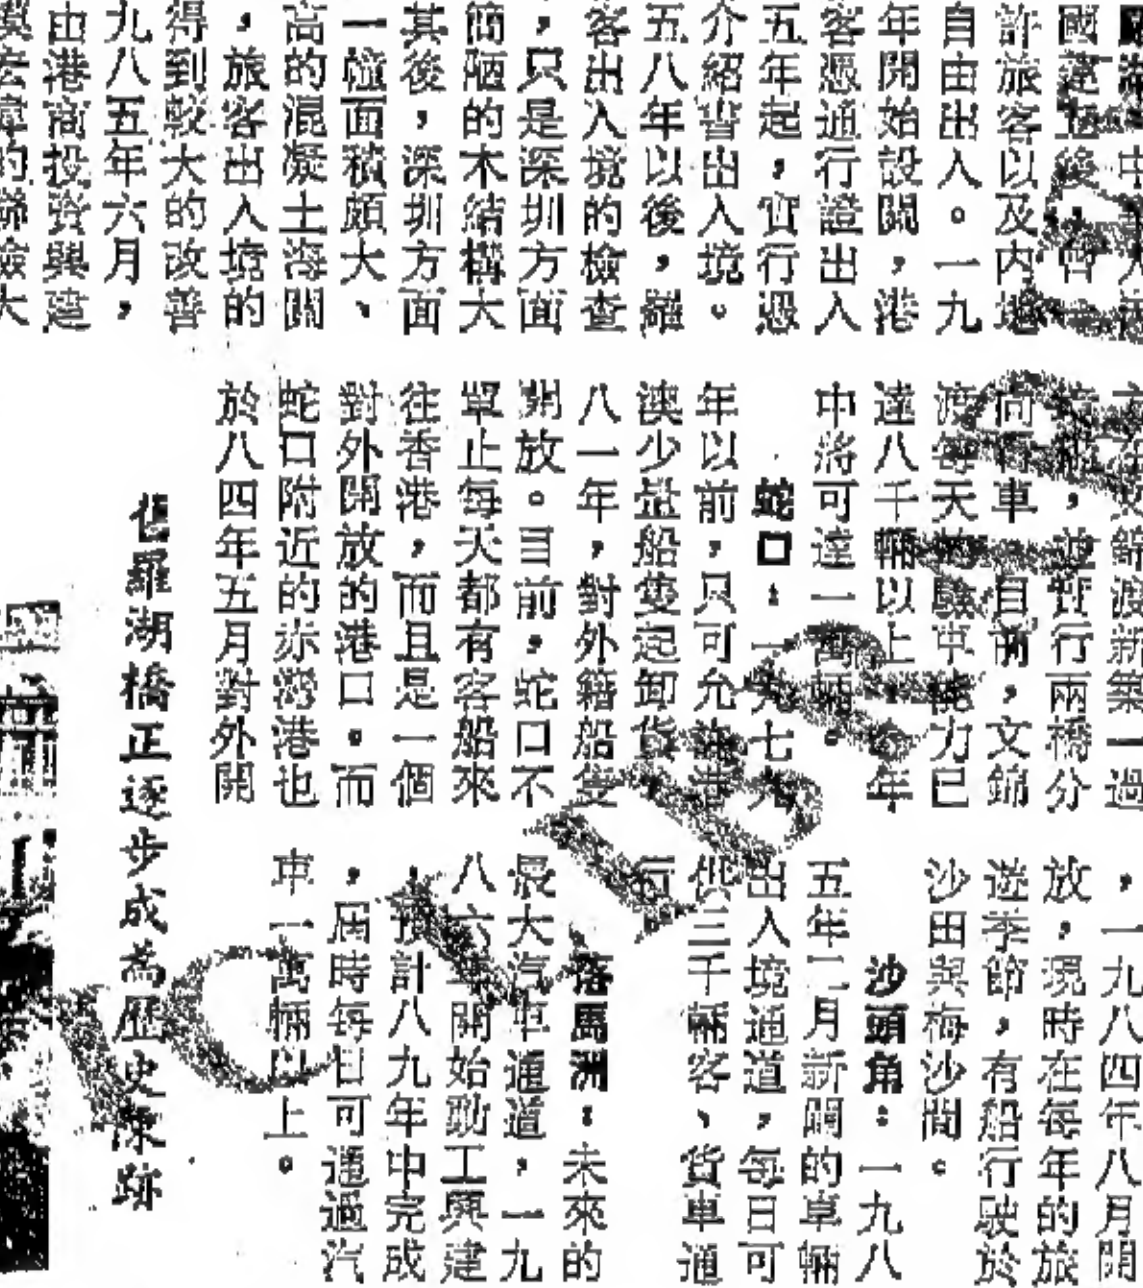 國建立後，
許旅客以及內地
自由出入。一九
年開始設關，港
客憑通行證出入
五年起，實行憑
介紹書出入境。
五八年以後，羅
客出入境的檢查
，只是深圳方面
簡陋的木結構大
其後，深圳方面
一幢面積頗大、
高的混凝土海關
，旅客出入境的
得到較大的改善
九八五年六月，
由港商投資興建
模宏偉的聯檢大
錦渡新築一過
，並實行兩橋分
向行車。目前，文錦
渡每天的驗車能力已
達八千輛以上，今年
中將可達一萬輛。
蛇口：一九七九
年以前，只可允許港
澳少量船隻起卸貨
八一年，對外籍船隻
開放。目前，蛇口不
單止每天都有客船來
往香港，而且是一個
對外開放的港口。而
蛇口附近的赤灣港也
於八四年五月對外開
舊羅湖橋正逐步成為歷史陳跡
，一九八四年八月開
放，現時在每年的旅
遊季節，有船行駛於
沙田與梅沙間。
沙頭角：一九八
五年二月新闢的車輛
出入境通道，每日可
供三千輛客、貨車通
行
落馬洲：未來的
最大汽車通道，一九
八六年開始動工興建
，預計八九年中完成
，屆時每日可通過汽
車一萬輛以上。